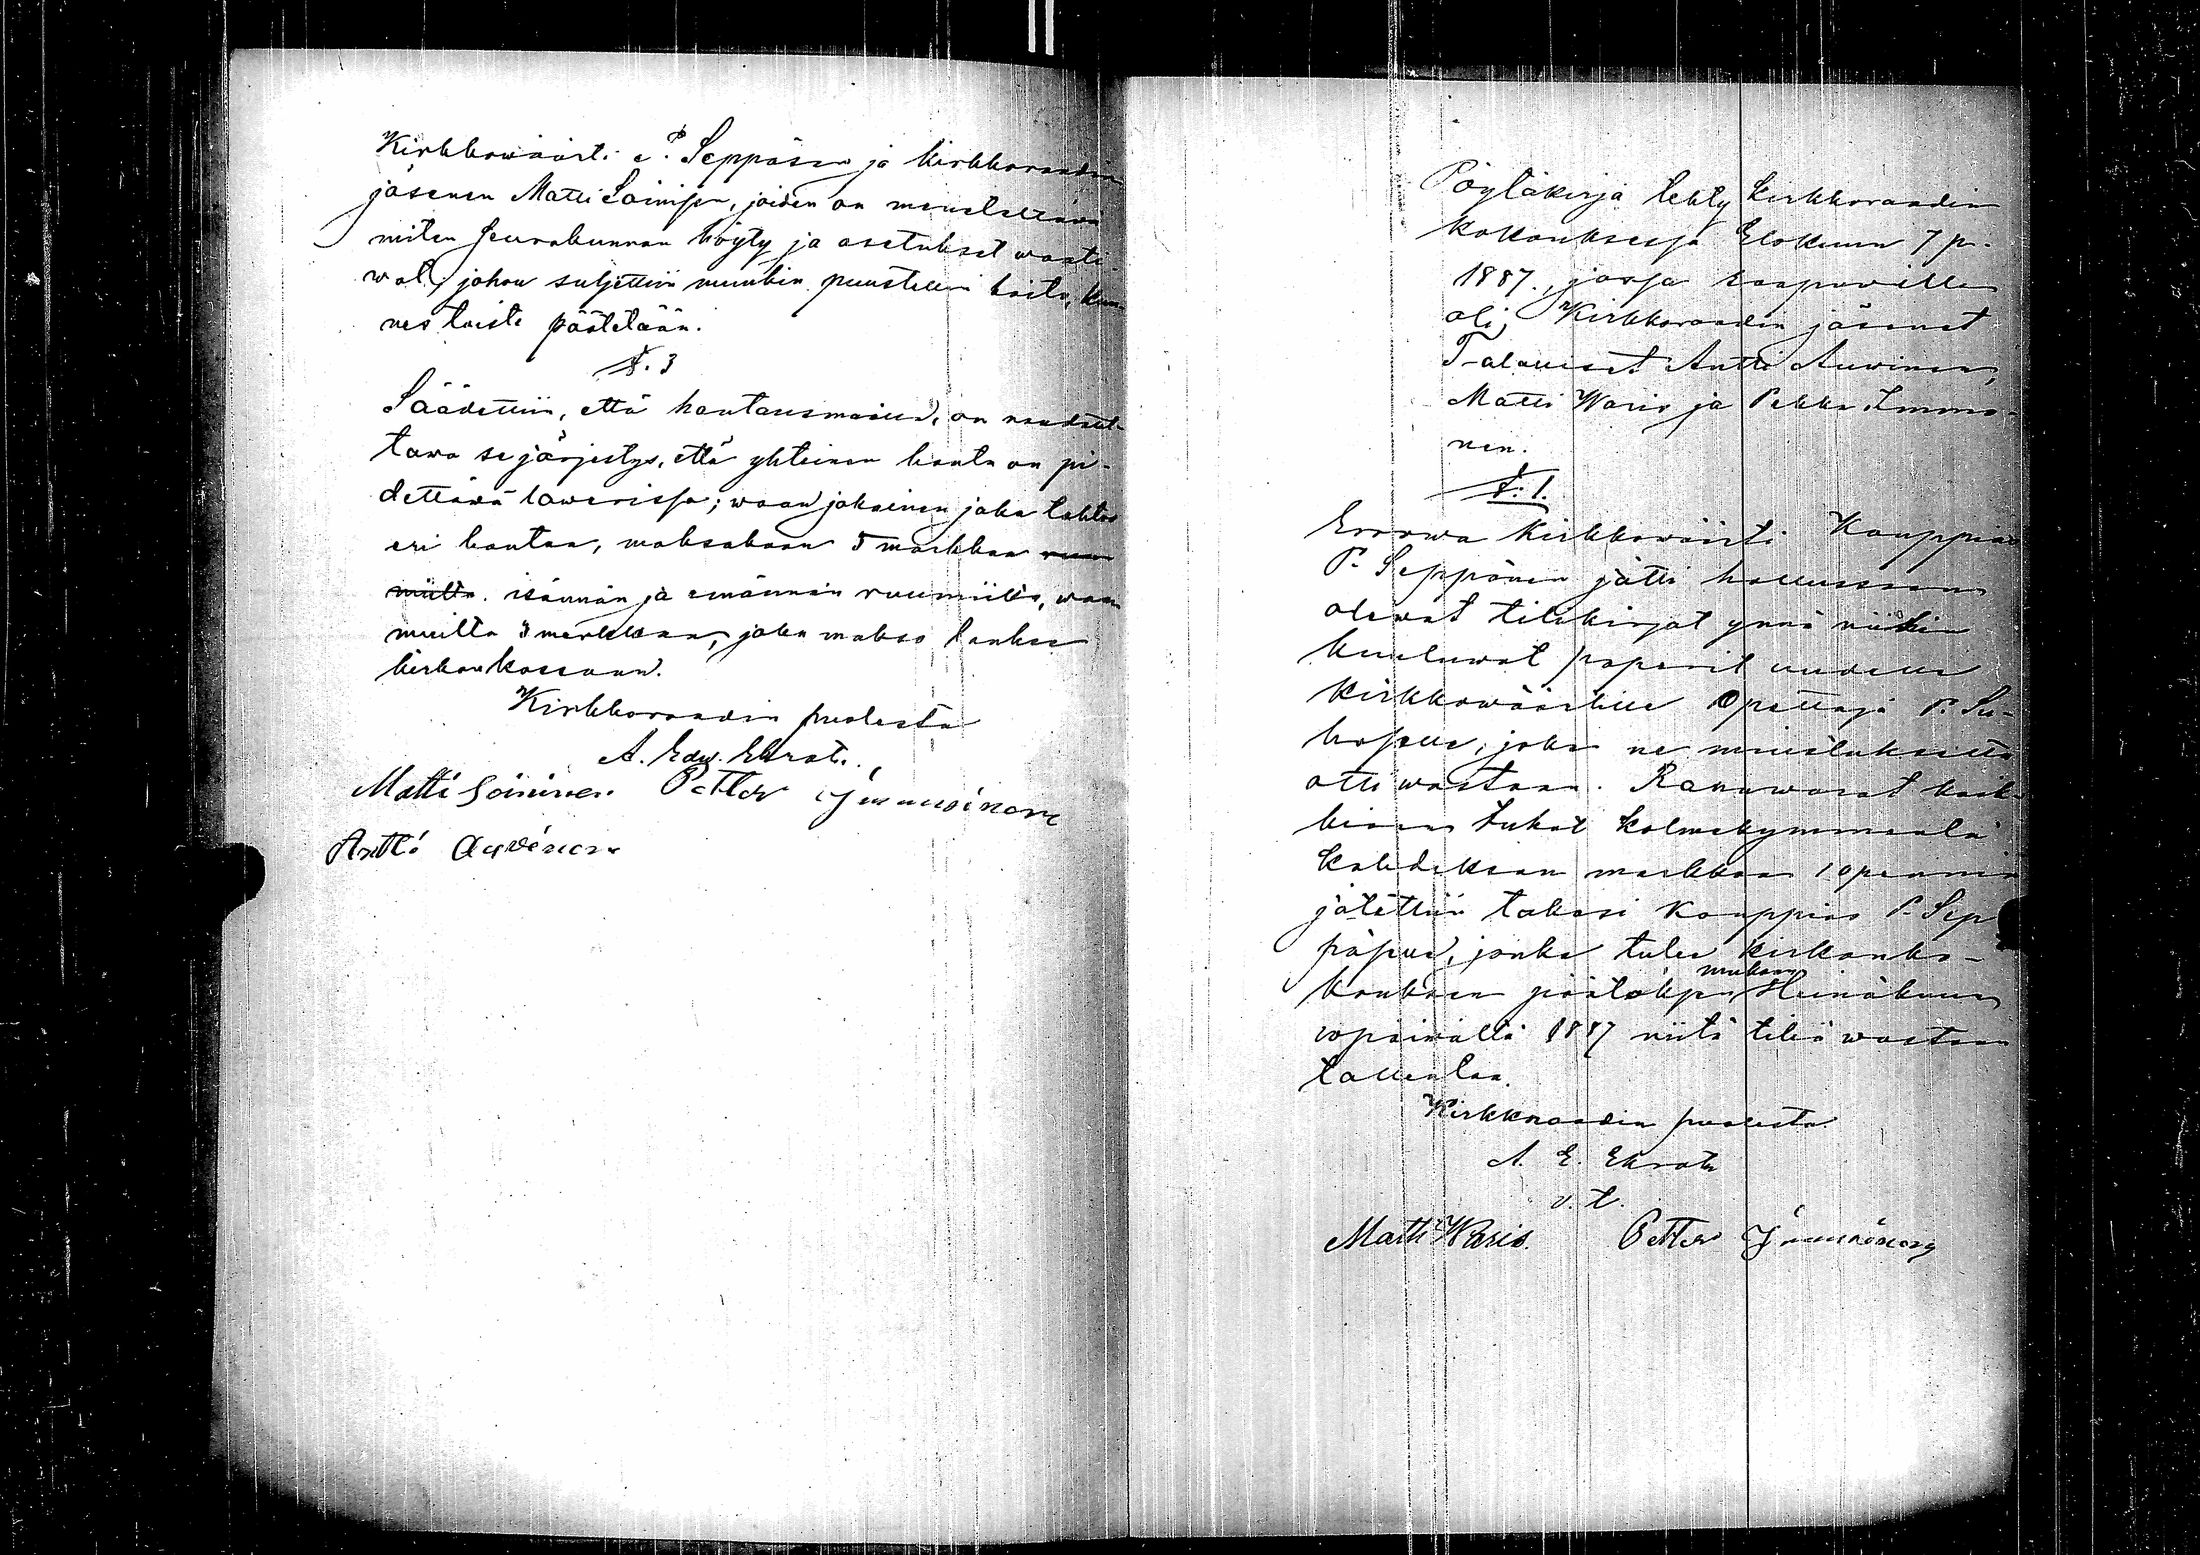 Kirkkowäärti P. Seppäsen ja kirkkoraadin
jäsenen Matti Soinisen, joiden on meneteltävä
miten seurakunnan höyty ja asetukset waati-
wat, johon suljettiin muunkin puustellin hoito, kun
nes toisti päätetään.
§. 3
Säädettiin, että hautausmaalla, on noudatet-
tawa se järjestys, että yhteinen hauta on pi-
dettäwä tawerissa; waan jokainen joka tahtoo
eri hautaa, maksakoon 5 markkaa ruu
miilta. isännän ja emännän ruumiilta, waan
muilta 3 markkaa, joka makso lankee
kirkon kassaan.
Kirkkoraadin puolesta
A. Edw. Ehrat.
Matti Soininen Petter Immoinen
Antti Auvinen
Pöytäkirja tehty kirkkoraadin
kokouksessa Elokuun 7 p.
1887., jossa saapuvilla
oli Kirkkoraadin jäsenet
Talolliset Antti Auwinen,
Matti Waris ja Pekka Immo-
nen.
§. 1.
Eroowa kirkkowäärti Kauppias
P. Seppänen jätti hallussaan
olewat tilikirjat ynnä niihin
kuuluwat paperit uudelle
kirkkowäärtille Opettaja P.
joka ne muistuksetta
otti wastaan. Rahawarat kaik-
kiaan kolmekymmentä
kahdeksan markkaa 10 penniä
jätettiin takasi Kauppias P. Sep
päselle, jonka tulee kirkonko-
kouksen päätöksen mukaan Heinäkuun
päiwältä 1887 niitä tiliä wastaan
tallentaa.
Kirkkoraadin puolesta
A. E. Ehrat
v. t.
Matti Waris. Petter Immoinen